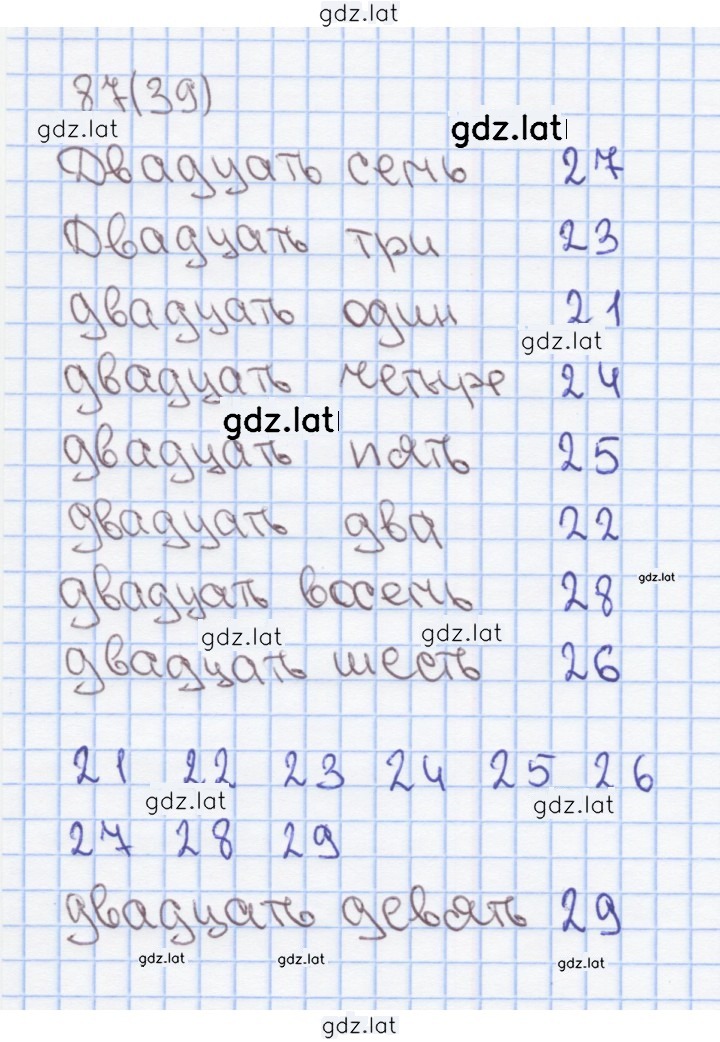 gdz.lat
87(39)
gdz.lat gdz.lat
Двадцать семь 27
Двадцать три 23
двадцать один 21
gdz.lat
двадцать четыре 24
gdz.lat
двадцать пять 25
двадцать два 22
gdz.lat
двадцать восемь 28
gdz.lat gdz.lat
двадцать шесть 26
21 22 23 24 25 26
gdz.lat gdz.lat
27 28 29
двадцать девять 29
gdz.lat gdz.lat gdz.lat
gdz.lat